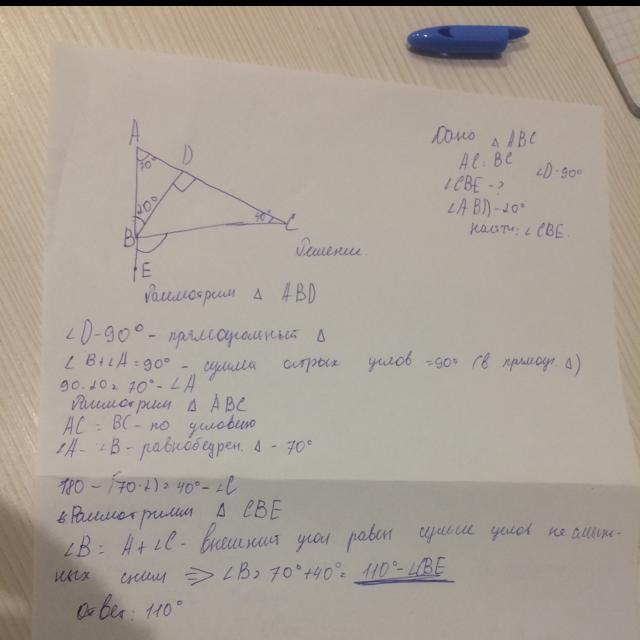 A
70°
D
20°
B
40°
C
E
Дано △ ABC
AC = BC
∠D-90°
∠CBE -?
∠ABD-20°
Найти: ∠CBE.
Решение.
Рассмотрим △ ABD
∠D-90° - прямоугольный △
∠B+∠A=90° - сумма острых углов =90° (в прямоуг. △)
90-20= 70°-∠A
Рассмотрим △ ABC
AC = BC - по условию
∠A- ∠B - равнобедрен. △ - 70°
180 - (70·2)= 40°-∠C
Рассмотрим △ CBE
∠B= A+∠C - внешний угол равен сумме углов не смеж-
ных с ним => ∠B= 70°+40°= 110°-∠CBE
Ответ: 110°